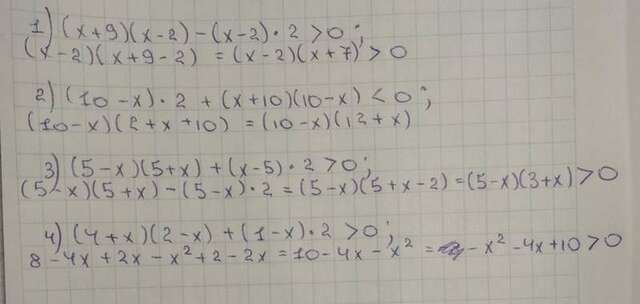 1) (x+9)(x-2)-(x-2)·2>0;
(x-2)(x+9-2) = (x-2)(x+7)>0
2) (10-x)·2+(x+10)(10-x)<0;
(10-x)(2+x+10) = (10-x)(12+x)
3) (5-x)(5+x)+(x-5)·2>0;
(5-x)(5+x)-(5-x)·2=(5-x)(5+x-2)=(5-x)(3+x)>0
4) (4+x)(2-x)+(1-x)·2>0;
8-4x+2x-x²+2-2x=10-4x-x²= -x²-4x+10>0